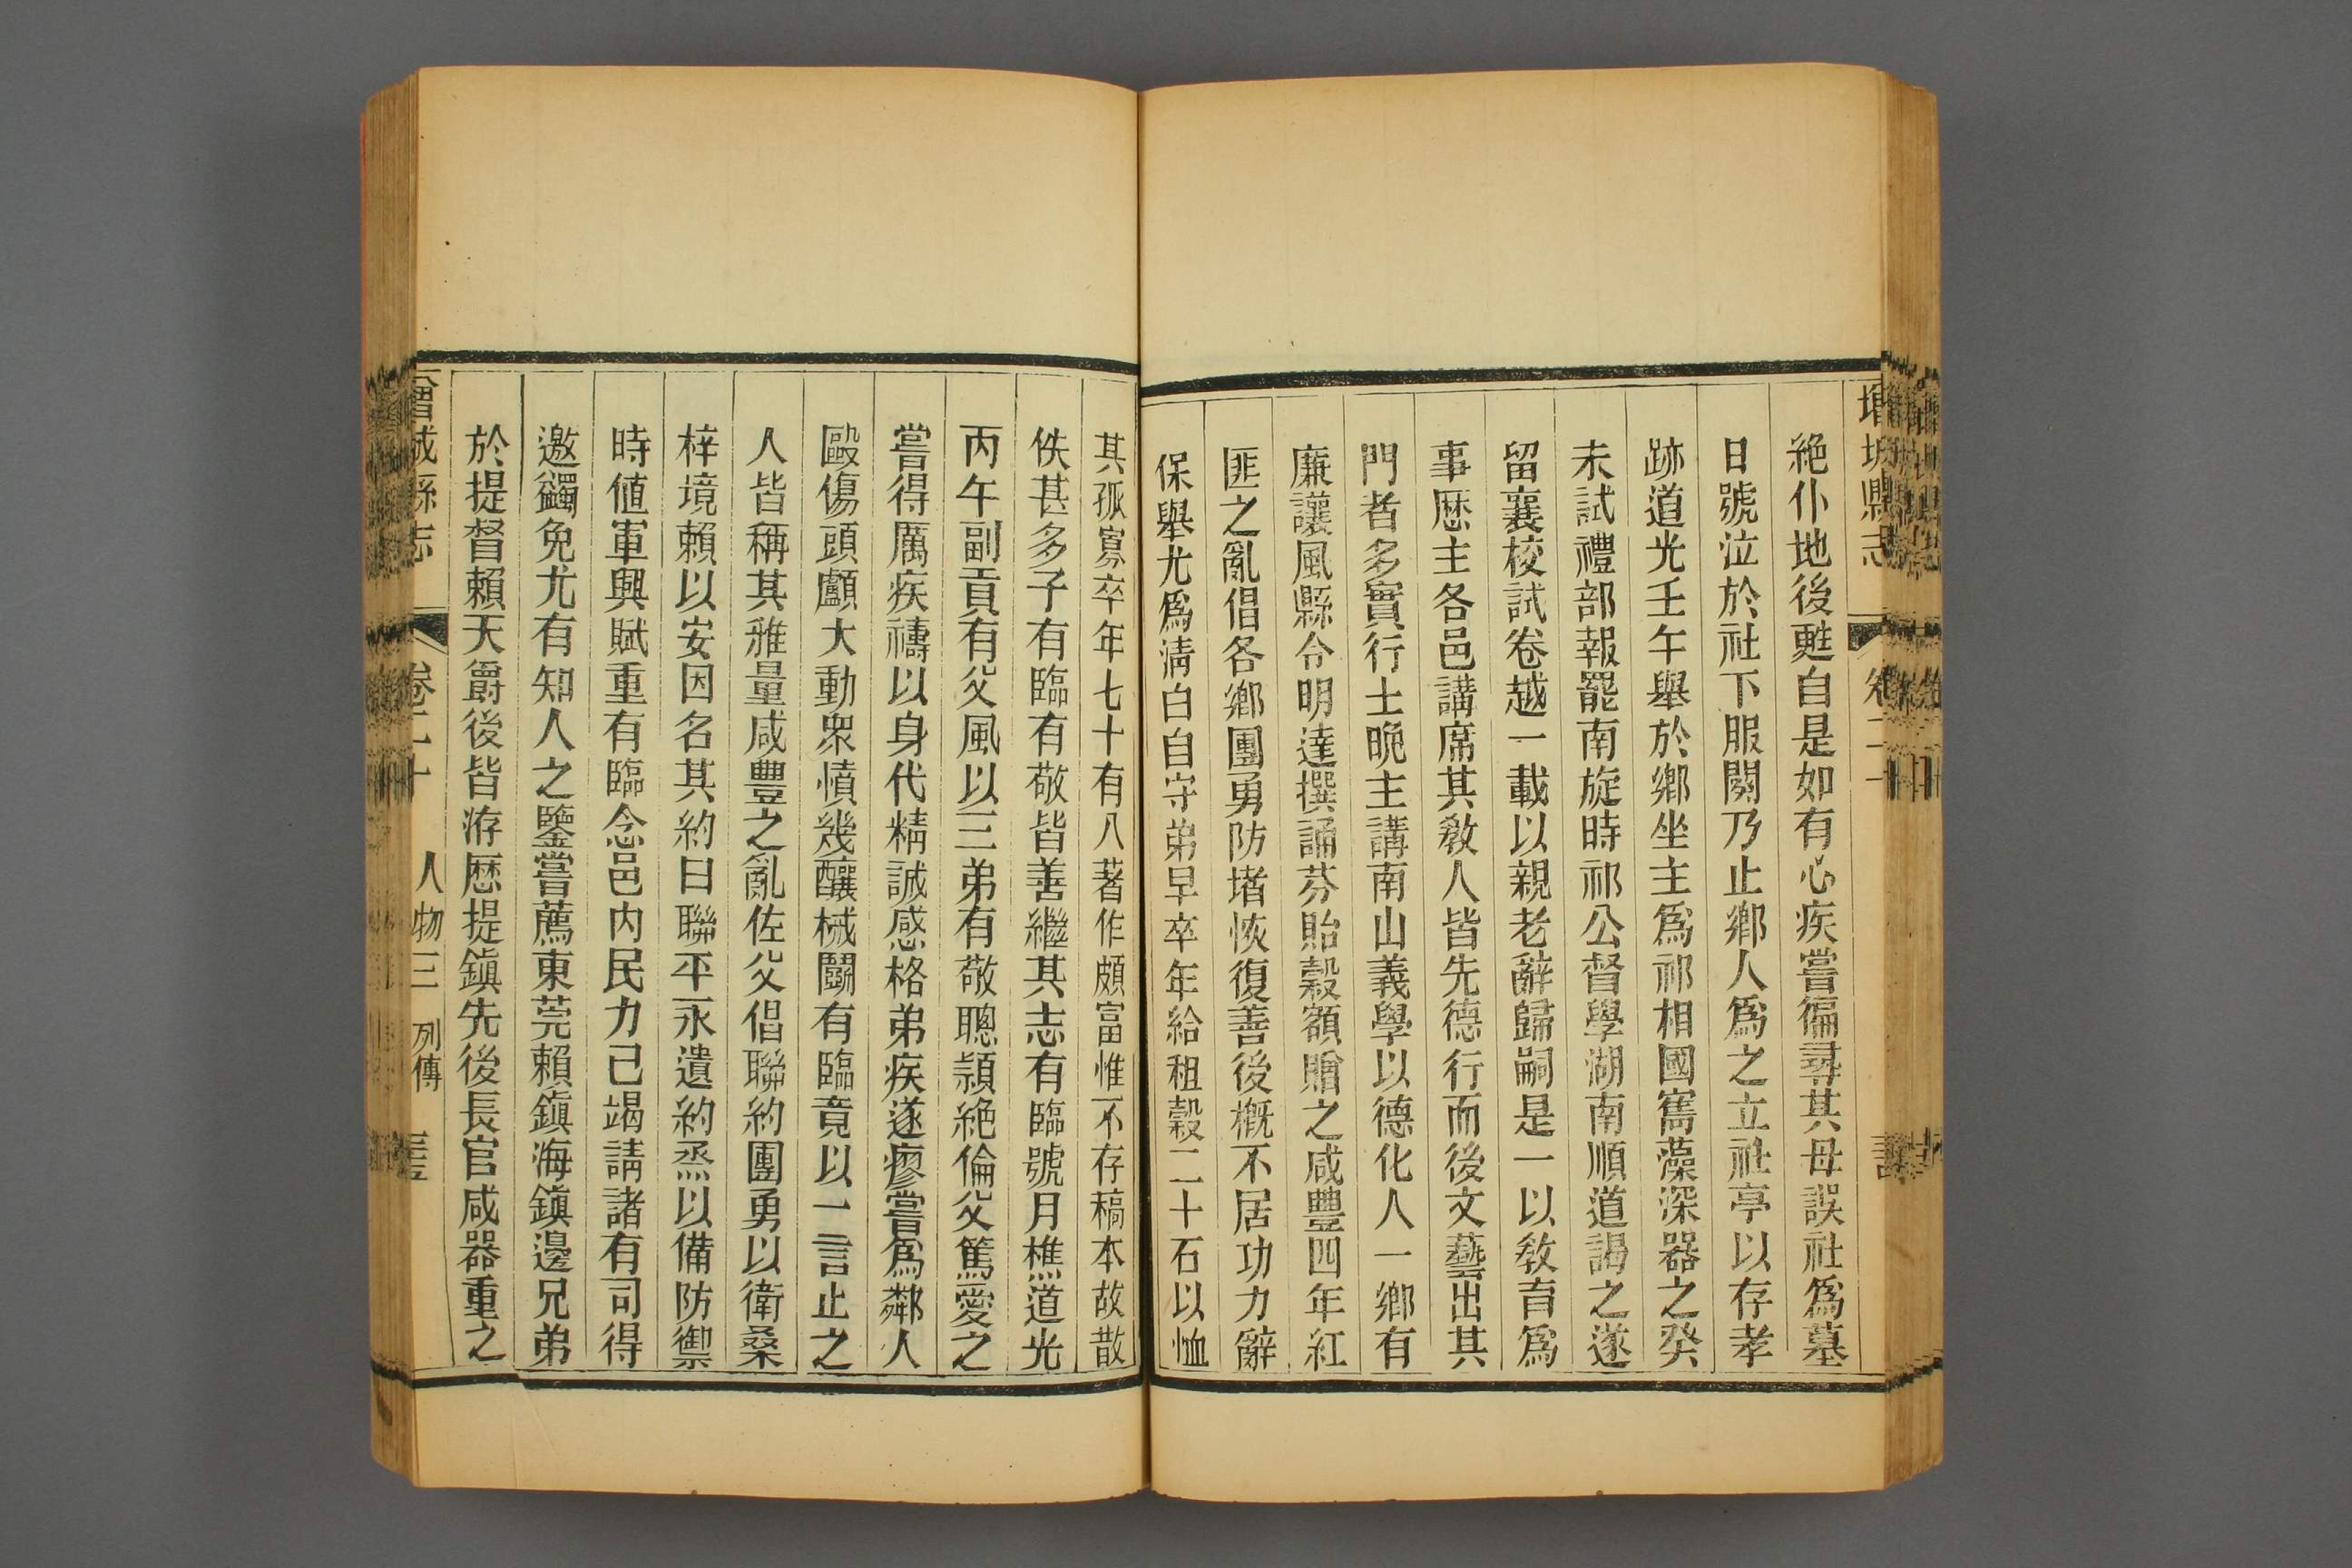 絶仆地後甦自是如有心疾嘗徧尋其母誤社爲墓
日號泣於社下服闋乃止鄕人爲之立社亭以存孝
跡道光壬午舉於鄕坐主爲祁相國寯藻深器之癸
未試禮部報罷南旋時祁公督學湖南順道謁之遂
留襄校試卷越一載以親老辭歸嗣是一以敎育爲
事歷主各邑講席其敎人皆先德行而後文藝出其
門者多實行士晚主講南山義學以德化人一鄕有
廉讓風縣令明達撰誦芬貽穀額贈之咸豐四年紅
匪之亂倡各鄕團勇防堵恢復善後槪不居功力辭
保舉尤爲淸白自守弟早卒年給租穀二十石以恤
其孤寡卒年七十有八著作頗富惟不存稿本故散
佚甚多子有臨有敬皆善繼其志有臨號月樵道光
丙午副貢有父風以三弟有敬聰頴絶倫父篤愛之
嘗得厲疾禱以身代精誠感格弟疾遂瘳嘗爲鄰人
毆傷頭顱大動衆憤幾釀械鬭有臨竟以一言止之
人皆稱其雅量咸豐之亂佐父倡聯約團勇以衛桑
梓境賴以安因名其約曰聯平永遺約烝以備防禦
時値軍興賦重有臨念邑内民力已竭請諸有司得
邀蠲免尤有知人之鑒嘗薦東莞賴鎭海鎭邊兄弟
於提督賴天爵後皆洊歷提鎭先後長官咸器重之
增城縣志
卷二十
人物三 列傳